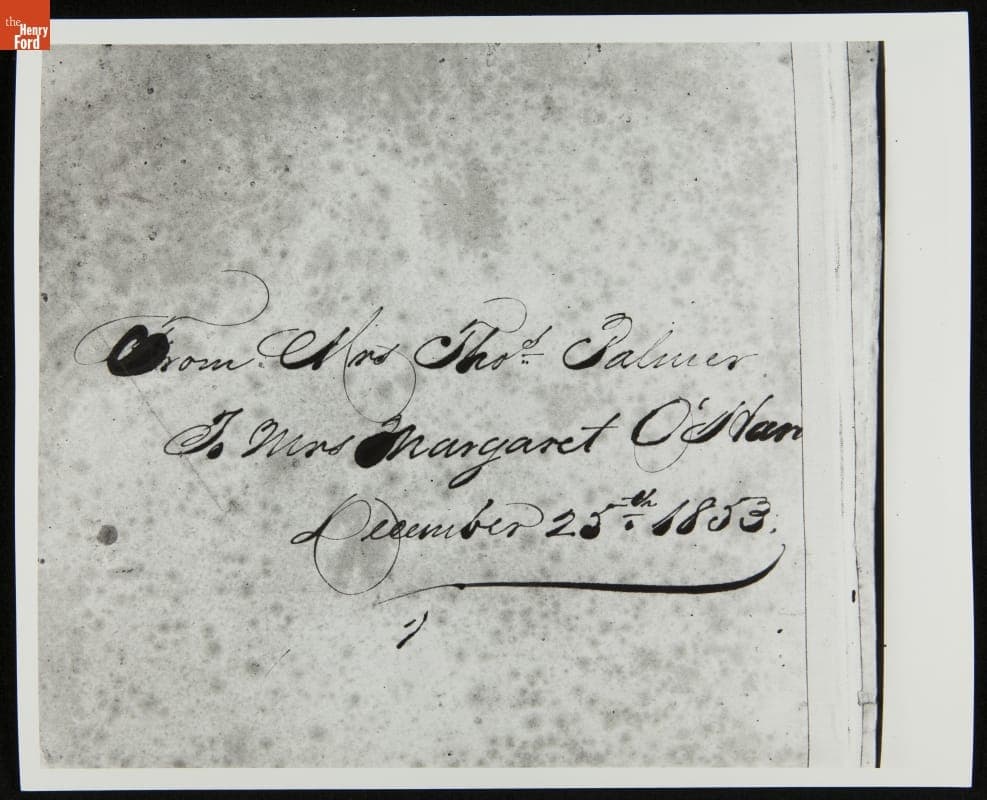 the
Henry
Ford
From Mrs Thos. Palmer
To Mrs Margaret O'Har
December 25th. 1853.